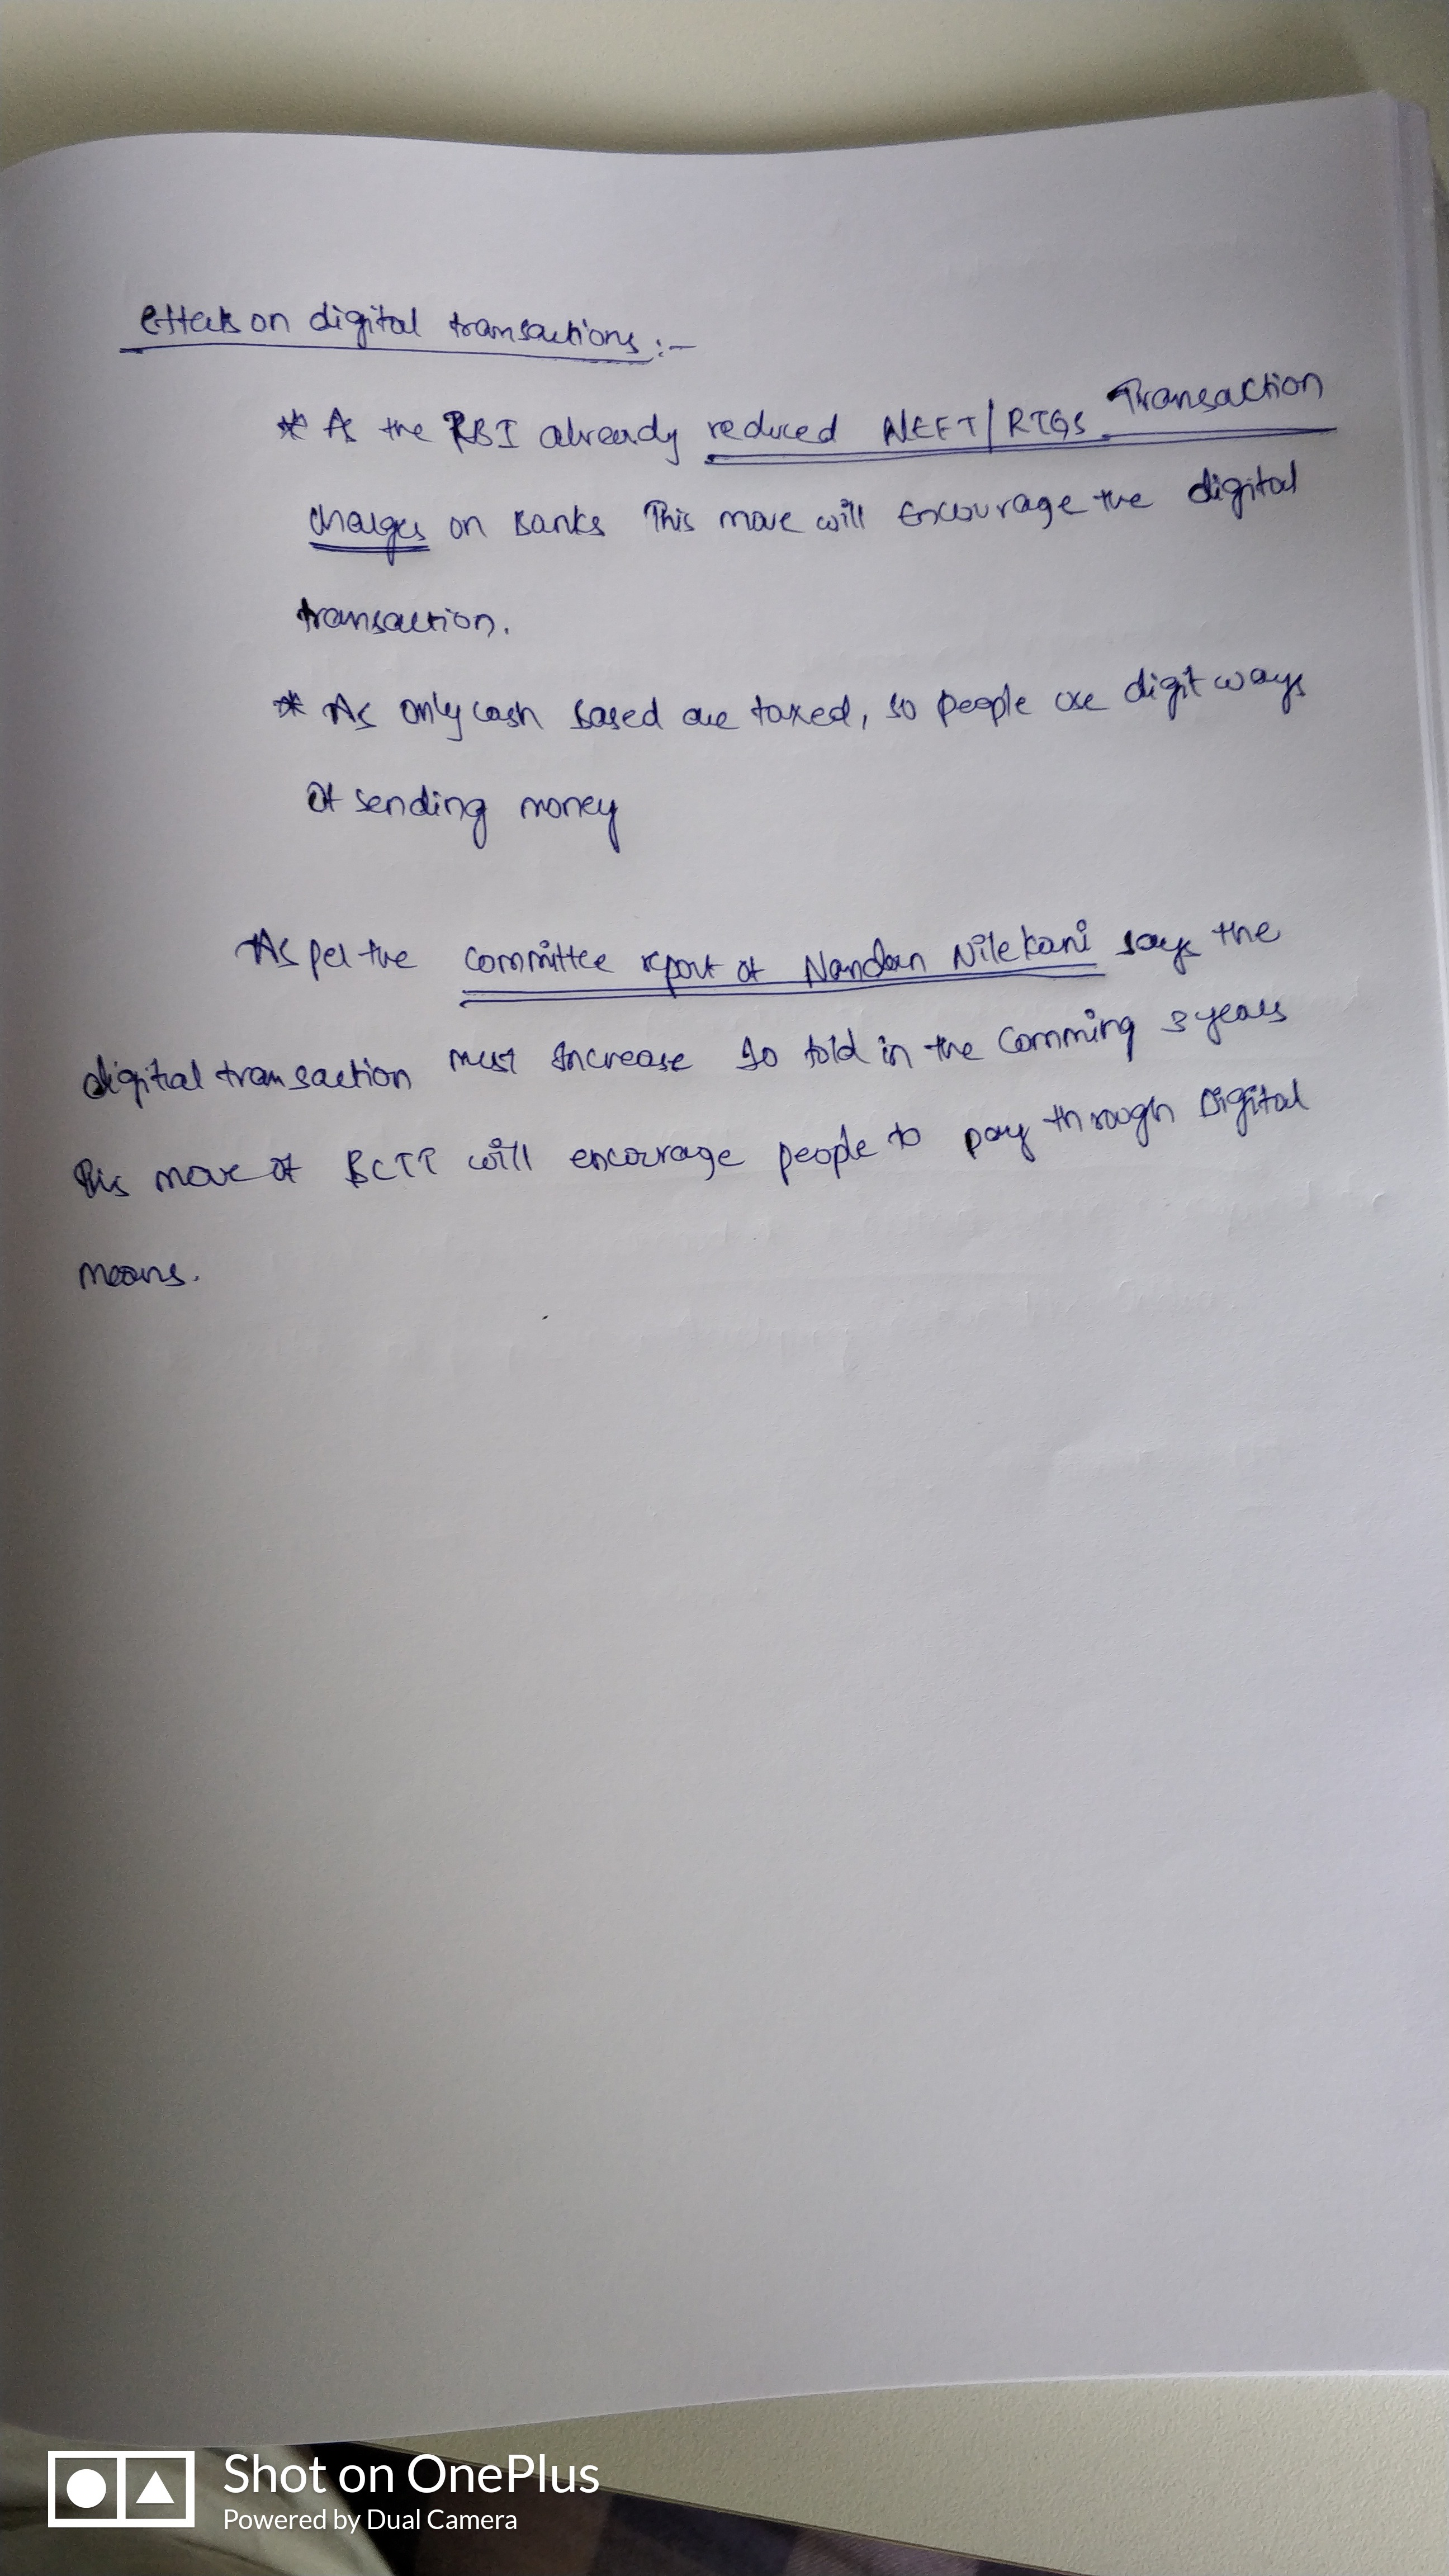 effects on digital transactions :-
* As the RBI already reduced NEFT/RTGS Transaction
charges on Banks This move will Encourage the digital
transaction.
* As only cash based are taxed, so people use digit ways
of sending money
As per the committee report of Nandan Nilekani says the
digital transaction must Increase 10 fold in the Comming 3 years
This move of BCTT will encourage people to pay through Digital
means.
Shot on OnePlus
Powered by Dual Camera